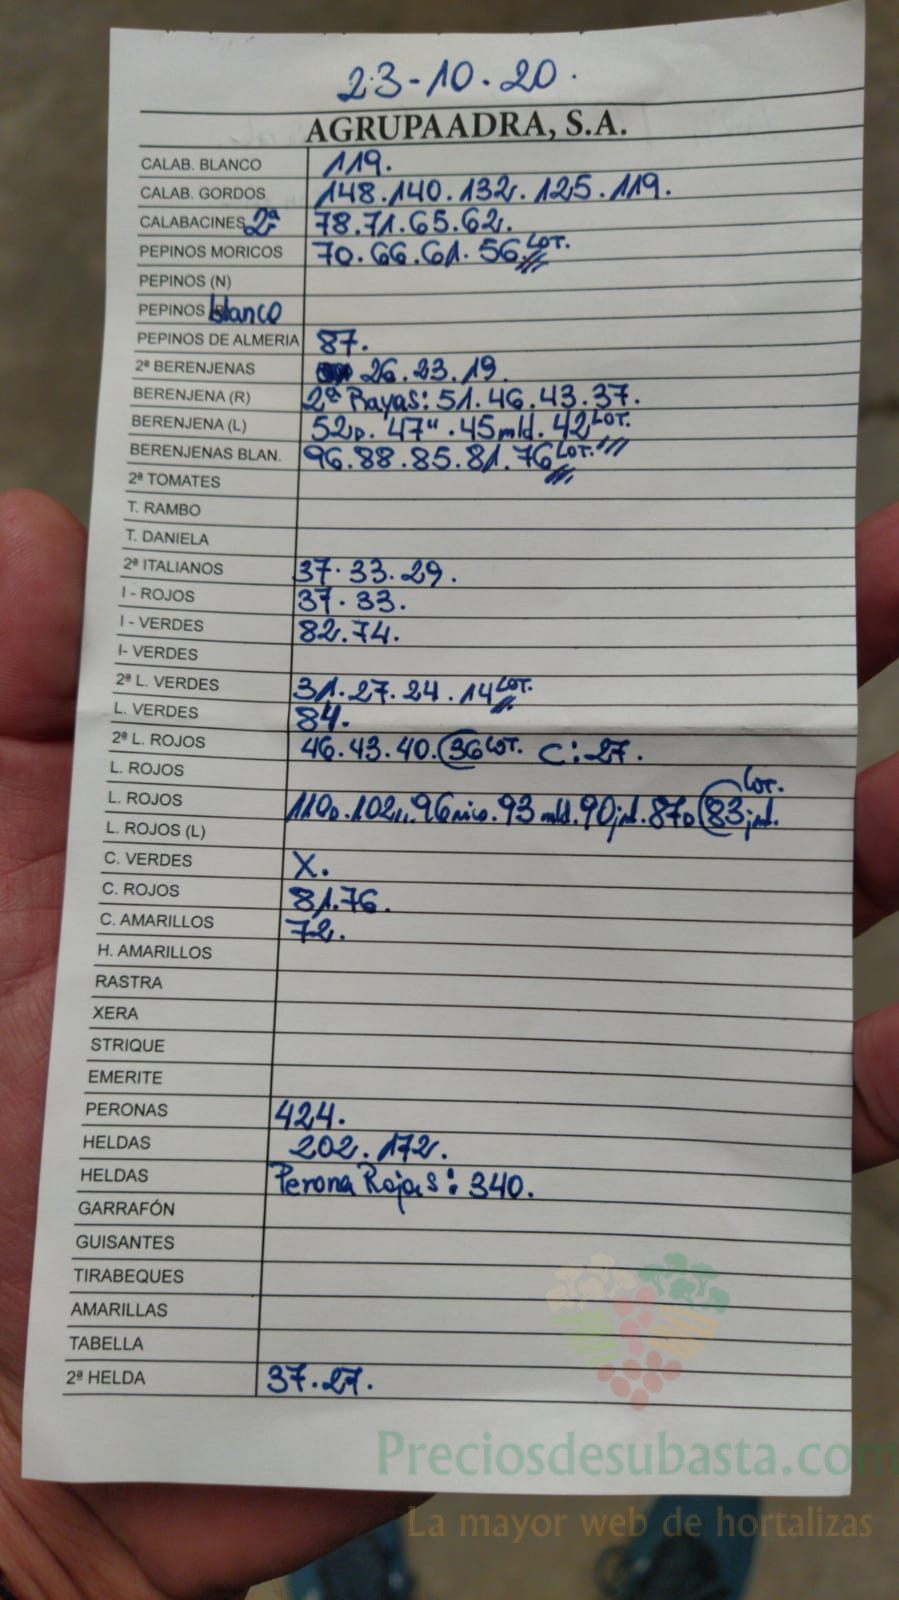 23-10-20.
AGRUPAADRA, S.A.
CALAB. BLANCO 119.
CALAB. GORDOS 148.140.132.125.119.
CALABACINES 2ª 78.71.65.62.
PEPINOS MORICOS 70.66.61.56 LOT.
PEPINOS (N)
PEPINOS blanco
PEPINOS DE ALMERIA 87.
2ª BERENJENAS 26.23.19.
BERENJENA (R) 2ª Rayas: 51.46.43.37.
BERENJENA (L) 52D. 47". 45 mld. 42 LOT.
BERENJENAS BLAN. 96.88.85.81.76 LOT.
2ª TOMATES
T. RAMBO
T. DANIELA
2ª ITALIANOS 37.33.29.
I - ROJOS 37.33.
I - VERDES 82.74.
I- VERDES
2ª L. VERDES 31.27.24.14 LOT.
L. VERDES 84.
2ª L. ROJOS 46.43.40.36 LOT. C: 27.
L. ROJOS
L. ROJOS 110D.102".96 nico.93 mld.90 jd.87D 83 jd. LOT.
L. ROJOS (L)
C. VERDES X.
C. ROJOS 81.76.
C. AMARILLOS 72.
H. AMARILLOS
RASTRA
XERA
STRIQUE
EMERITE
PERONAS 424.
HELDAS 202.172.
HELDAS Perona Rojas: 340.
GARRAFÓN
GUISANTES
TIRABEQUES
AMARILLAS
TABELLA
2ª HELDA 37.27.
Preciosdesubasta.com
La mayor web de hortalizas